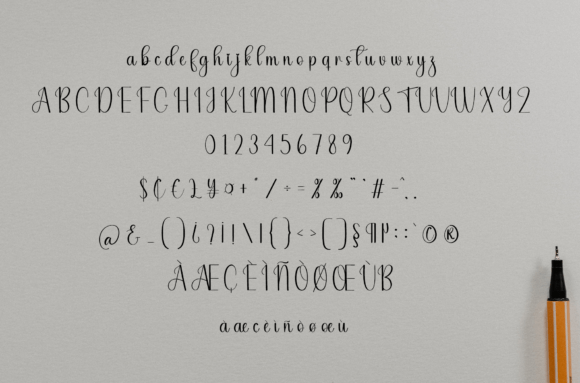 abcdefghijklmnopqrstuvwxyz
ABCDEFGHIJKLMNOPQRSTUVWXYZ
0123456789
$₵€£¥¤+°/÷=%‰¨˙#-^..
@&_()¿?¡!\|{}<>[]§¶µ::`©®
ÀÆÇÈÌÑÒØŒÙB
àæcèìñòøœù